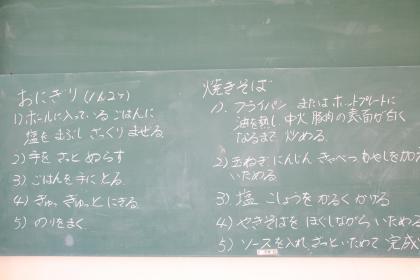 おにぎり(1人2ケ)
1)ボールに入っているごはんに
塩をまぶしざっくりませる
2)手をさっとぬらす
3)ごはんを手にとる
4)ぎゅっぎゅっとにぎる
5)のりをまく
焼きそば
1)フライパン またはホットプレートに
油を熱し 中火 豚肉の表面が白く
なるまで 炒める
2)玉ねぎ にんじん きゃべつ もやしを加え
いためる
3)塩 こしょうを かるく かける
4)やきそばを ほぐしながら いためる
5)ソースを入れ さっといためて 完成